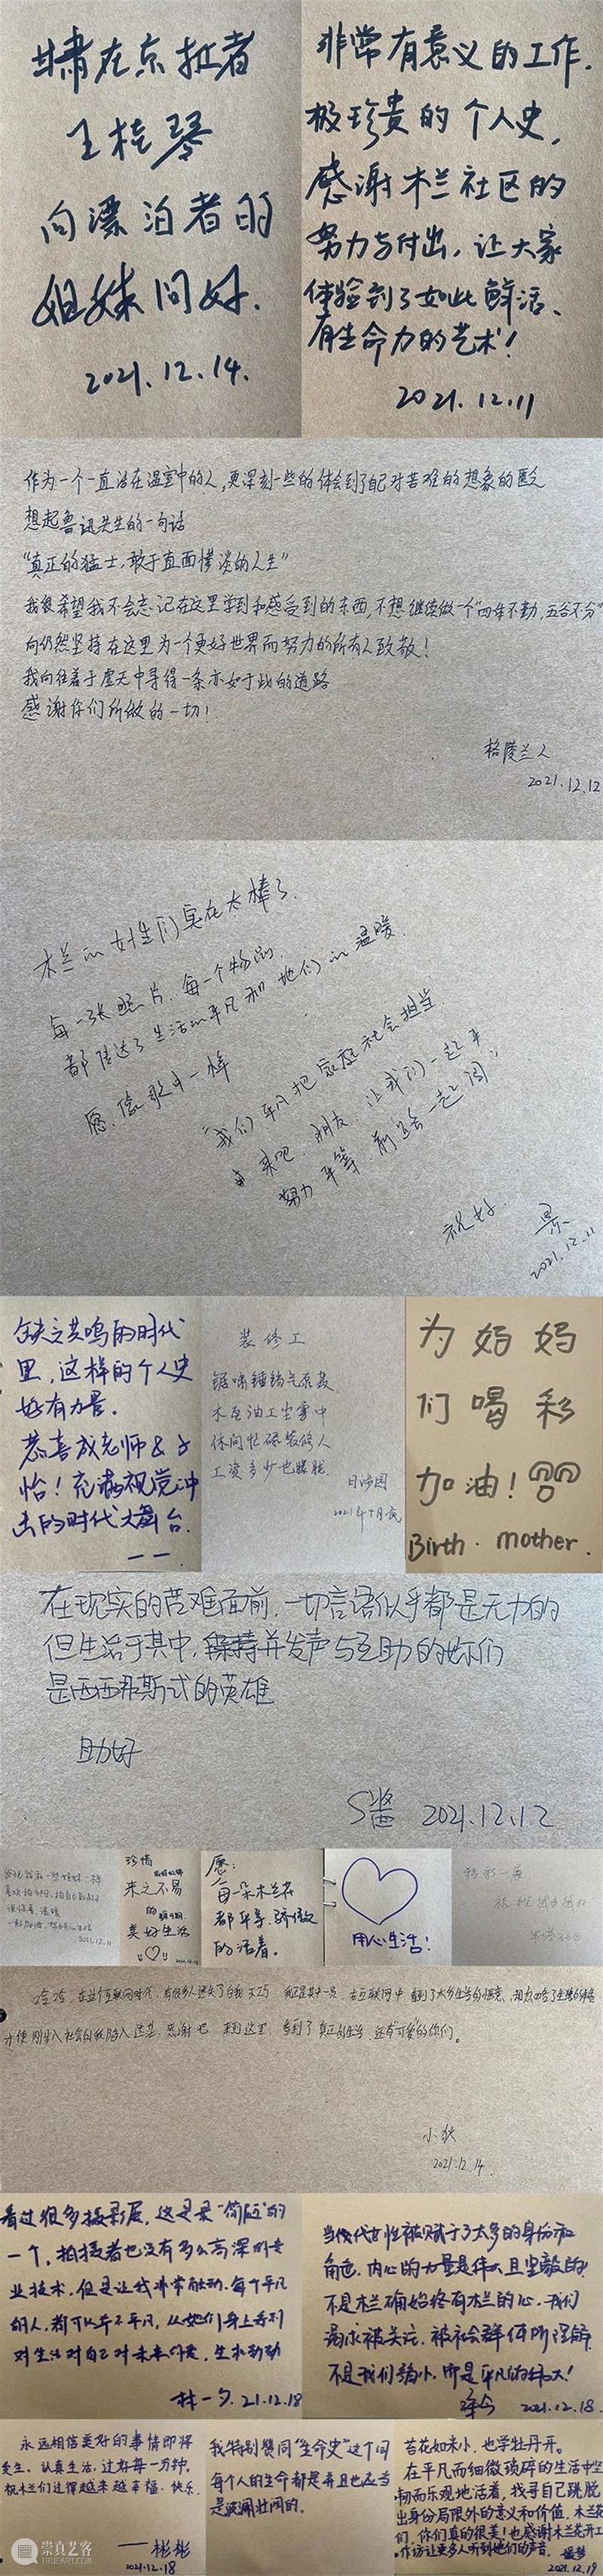 甘肃在京扯者
王桂琴
向漂泊者的
姐妹问好.
2021.12.14.
非常有意义的工作.
极珍贵的个人史,
感谢木兰社区的
努力与付出,让大家
体验到了如此鲜活、
有生命力的艺术!
2021.12.11
作为一个一直活在温室中的人,更深刻一些的体会到了自己对苦难的想象的匮乏
想起鲁迅先生的一句话
“真正的猛士,敢于直面惨淡的人生”
我很希望我不会忘记在这里学到和感受到的东西,不想继续做一个“四体不勤,五谷不分”
向仍然坚持在这里为一个更好世界而努力的所有人致敬!
我向往着于虚无中寻得一条亦如于战的道路
感谢你们所做的一切!
格陵兰人
2021.12.12
木兰的女生们实在太棒了.
每一张照片,每一个物品,
都传达了生活的平凡和她们的温暖.
愿,像歌中一样
“我们平凡把家庭社会担当
来吧,朋友,让我们一起来
努力平等,前路一起闯”
祝好.
2021.12.11
缺乏共鸣的时代
里,这样的个人史
好有力量.
恭喜成老师&子
怡!充满视觉冲
击的时代大舞台.
一一.
装修工
锯啸锤镐气泵轰
木屋油工尘雾中
休问忙碌装修人
工资多少也朦胧.
日涉园
2021年十月底
为妈妈
们喝彩
加油!
Birth. mother.
在现实的苦难面前,一切言语似乎都是无力的
但生活于其中,保持并发声与互助的你们
是西西弗斯式的英雄
助好
S酱 2021.12.12
2021.12.11
珍惜
来之不易
的
美好生活
愿:
每一朵木兰花
都平等、骄傲
的活着.
用心生活!
哈哈,在这个互联网时代,有很多人迷失了自我
才使刚步入社会的我陷入迷茫.感谢 来到这里,看到了真正的生活,还有“可爱”的你们。
小狄
2021.12.14.
看过很多摄影展,这是最“简陋”的
一个,拍摄者也没有多么高深的专
业技术,但是让我非常触动.每个平凡
的人,都可以并不平凡,从她们身上看到
对生活对自己对未来
林一夕.21.12.18
当代女性被赋于了太多的身份和
角色,内心的力量是伟大且坚毅的!
不是木兰确始终有木兰的心.我们
渴求被关注,被社会群体所理解.
不是我们渺小,而是平凡的伟大!
2021.12.18.
永远相信美好的事情即将
发生.认真生活,过好每一分钟.
祝木兰们过得越来越幸福、快乐.
——彬彬
2021.12.18
我特别赞同“生命史”这个词
每个人的生命都是并且也应当
是波澜壮阔的.
苔花如米小,也学牡丹开。
在平凡而细微琐碎的生活中坚
韧而乐观地活着,找寻自己跳脱
出身份局限外的意义和价值.木兰花
们,你们真的很美!也感谢木兰花开工
作坊让更多人听到她们的声音.
2021.12.19
崇真艺客
TRUEART.COM